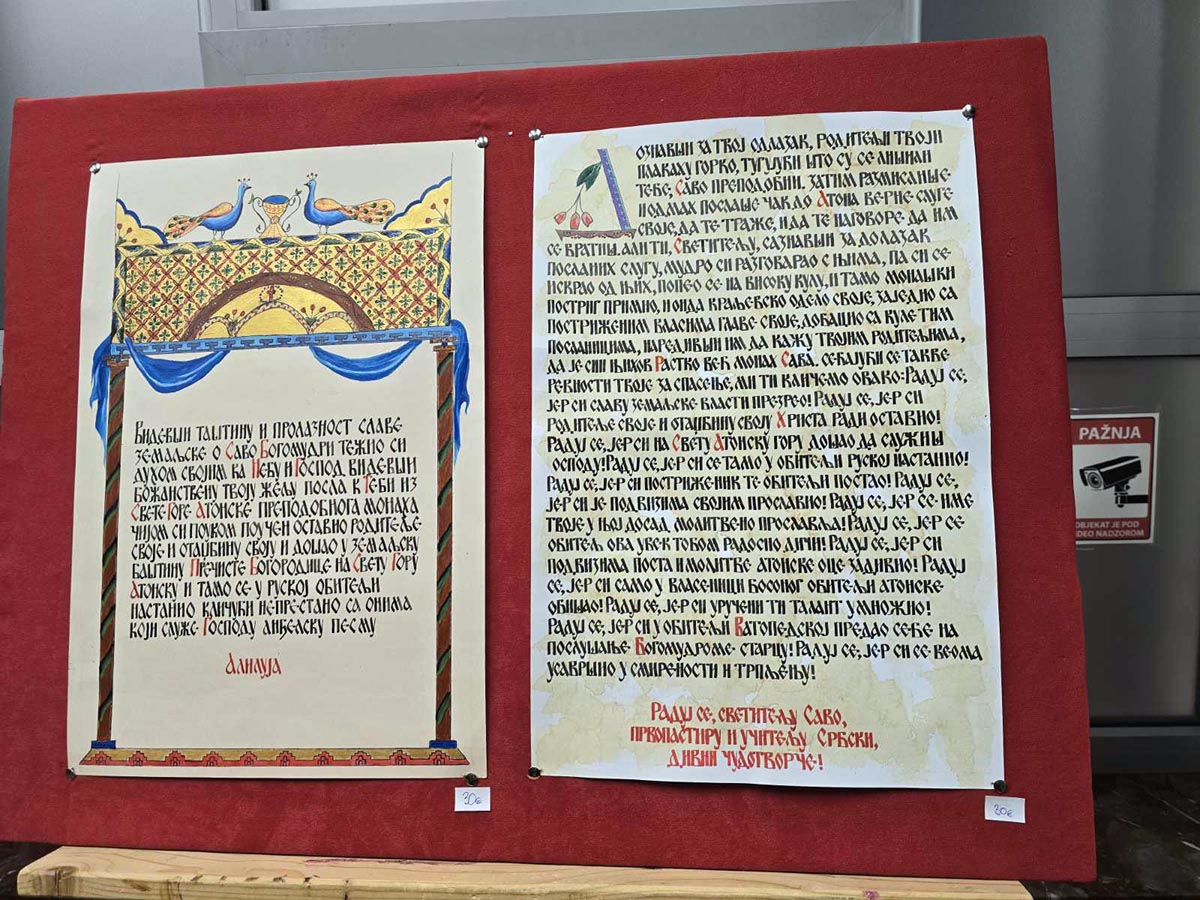 Видевши таштину и пролазност славе
земаљске о Саво Богомудри тежио си
духом својим ка Небу и Господ видевши
божанствену твоју жељу посла к Теби из
Свете Горе Атонске преподобнога монаха
чијом си поуком поучен оставио родитеље
своје и отаџбину своју и дошао у земаљску
баштину Пречисте Богородице на Свету Гору
Атонску и тамо се у руској обитељи
настанио кличући непрестано са онима
који служе Господу анђелску песму
Алилуја
30€
Дознавши за твој одлазак, родитељи твоји
плакаху горко, тугујући што су се лишили
тебе, Саво преподобни. Затим размисливше
подмах послаше чак до Атона верне слуге
своје, да те траже, и да те наговоре да им
се вратиш. Али ти, Светитељу, сазнавши за долазак
посланих слугу, мудро си разговарао с њима, па си се
искрао од њих, попео се на високу кулу, и тамо монашки
постриг примио, и онда краљевско одело своје, заједно са
постриженим власима главе своје, добацио са куле тим
посланицима, наредивши им да кажу твојим родитељима,
да је син њихов Растко већ монах Сава. Сећајући се такве
ревности твоје за спасење, ми ти кличемо овако: Радуј се,
јер си славу земаљске власти презрео! Радуј се, јер си
родитеље своје и отаџбину своју Христа ради оставио!
Радуј се, јер си на Свету Атонску гору дошао да служиш
Господу! Радуј се, јер си се тамо у обитељи руској настанио!
Радуј се, јер си постриженик те обитељи постао! Радуј се,
јер си је подвизима својим прославио! Радуј се, јер се име
твоје у њој досад молитвено прославља! Радуј се, јер се
обитељ ова увек тобом радосно дичи! Радуј се, јер си
подвизима поста и молитве атонске оце задивио! Радуј
се, јер си само у власеници босоног обитељи атонске
обишао! Радуј се, јер си уручени ти талант умножио!
Радуј се, јер си у обитељи Ватопедској предао себе на
послушање Богомудроме старцу! Радуј се, јер си се веома
усавршио у смирености и трпљењу!
Радуј се, светитељу Саво,
првопастиру и учитељу Србски,
дивни чудотворче!
30€
PAŽNJA
OBJEKAT JE POD
VIDEO NADZOROM